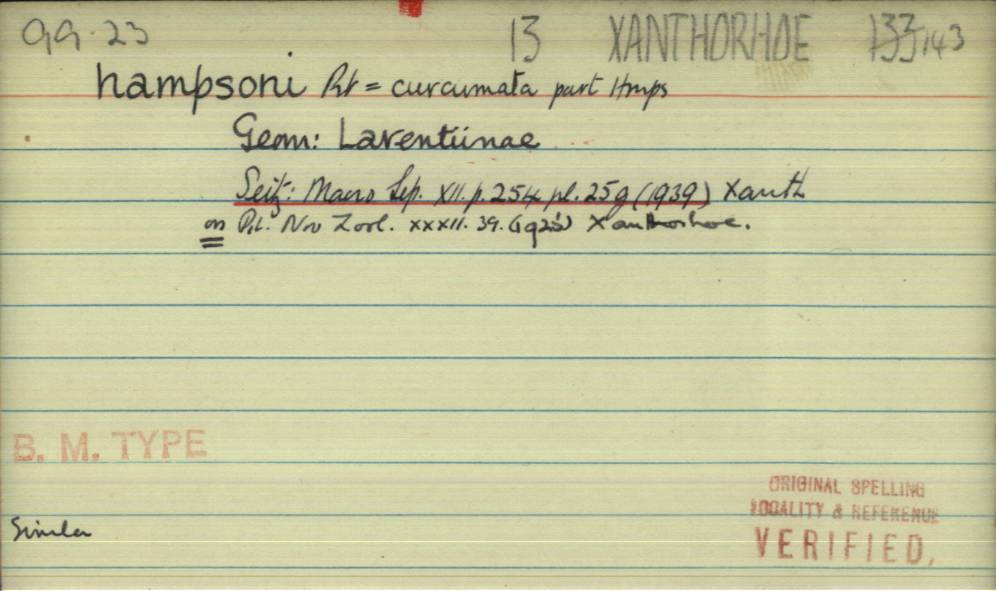 99.23 13 XANTHORHOE 133 143
hampsoni Prt = curcumata part Hmps
Geom: Larentiinae
Seitz: Macro Lep. XII. p. 254 pl. 25g (1939) Xanth
on Prt. Nov Zool. XXXII. 39. (1925) Xanthorhoe.
B. M. TYPE
ORIGINAL SPELLING
LOCALITY & REFERENCE
VERIFIED.
Simla